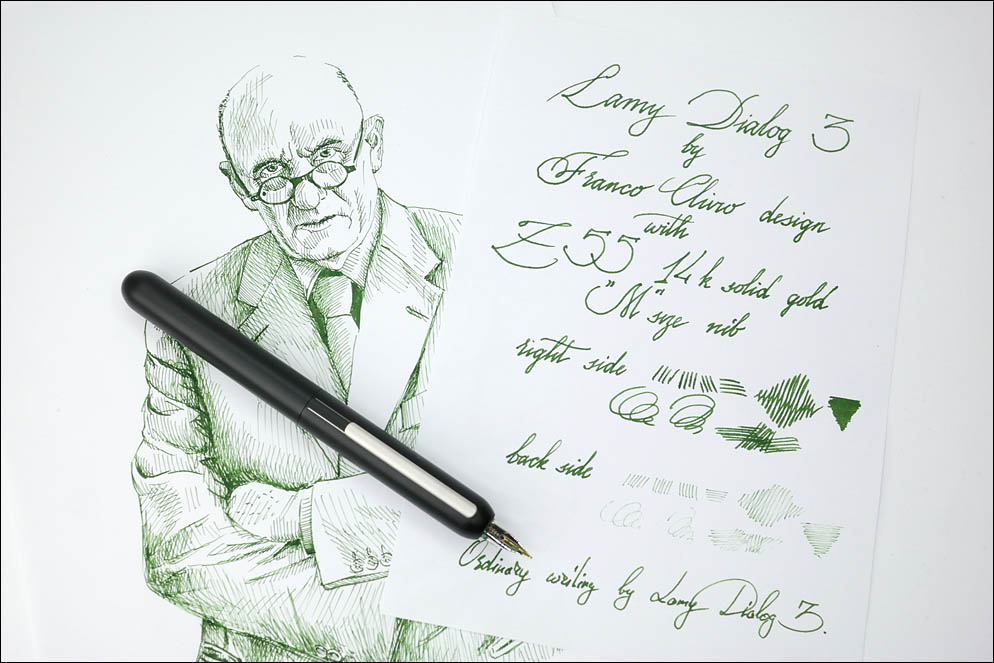 Lamy Dialog 3
by
Franco Clivio design
with
Z 55 14 k solid gold
"M" size nib
right side
back side
Ordinary writing by Lamy Dialog 3.